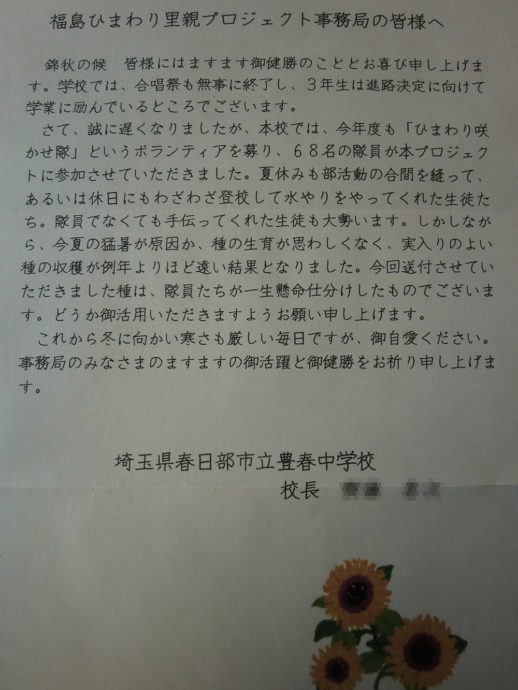 福島ひまわり里親プロジェクト事務局の皆様へ
錦秋の候　皆様にはますます御健勝のこととお喜び申し上げま
す。学校では、合唱祭も無事に終了し、３年生は進路決定に向けて
学業に励んでいるところでございます。
さて、誠に遅くなりましたが、本校では、今年度も「ひまわり咲
かせ隊」というボランティアを募り、６８名の隊員が本プロジェク
トに参加させていただきました。夏休みも部活動の合間を縫って、
あるいは休日にもわざわざ登校して水やりをやってくれた生徒た
ち。隊員でなくても手伝ってくれた生徒も大勢います。しかしなが
ら、今夏の猛暑が原因か、種の生育が思わしくなく、実入りのよい
種の収穫が例年よりほど遠い結果となりました。今回送付させてい
ただきました種は、隊員たちが一生懸命仕分けしたものでございま
す。どうか御活用いただきますようお願い申し上げます。
これから冬に向かい寒さも厳しい毎日ですが、御自愛ください。
事務局のみなさまのますますの御活躍と御健勝をお祈り申し上げま
す。
埼玉県春日部市立豊春中学校
校長